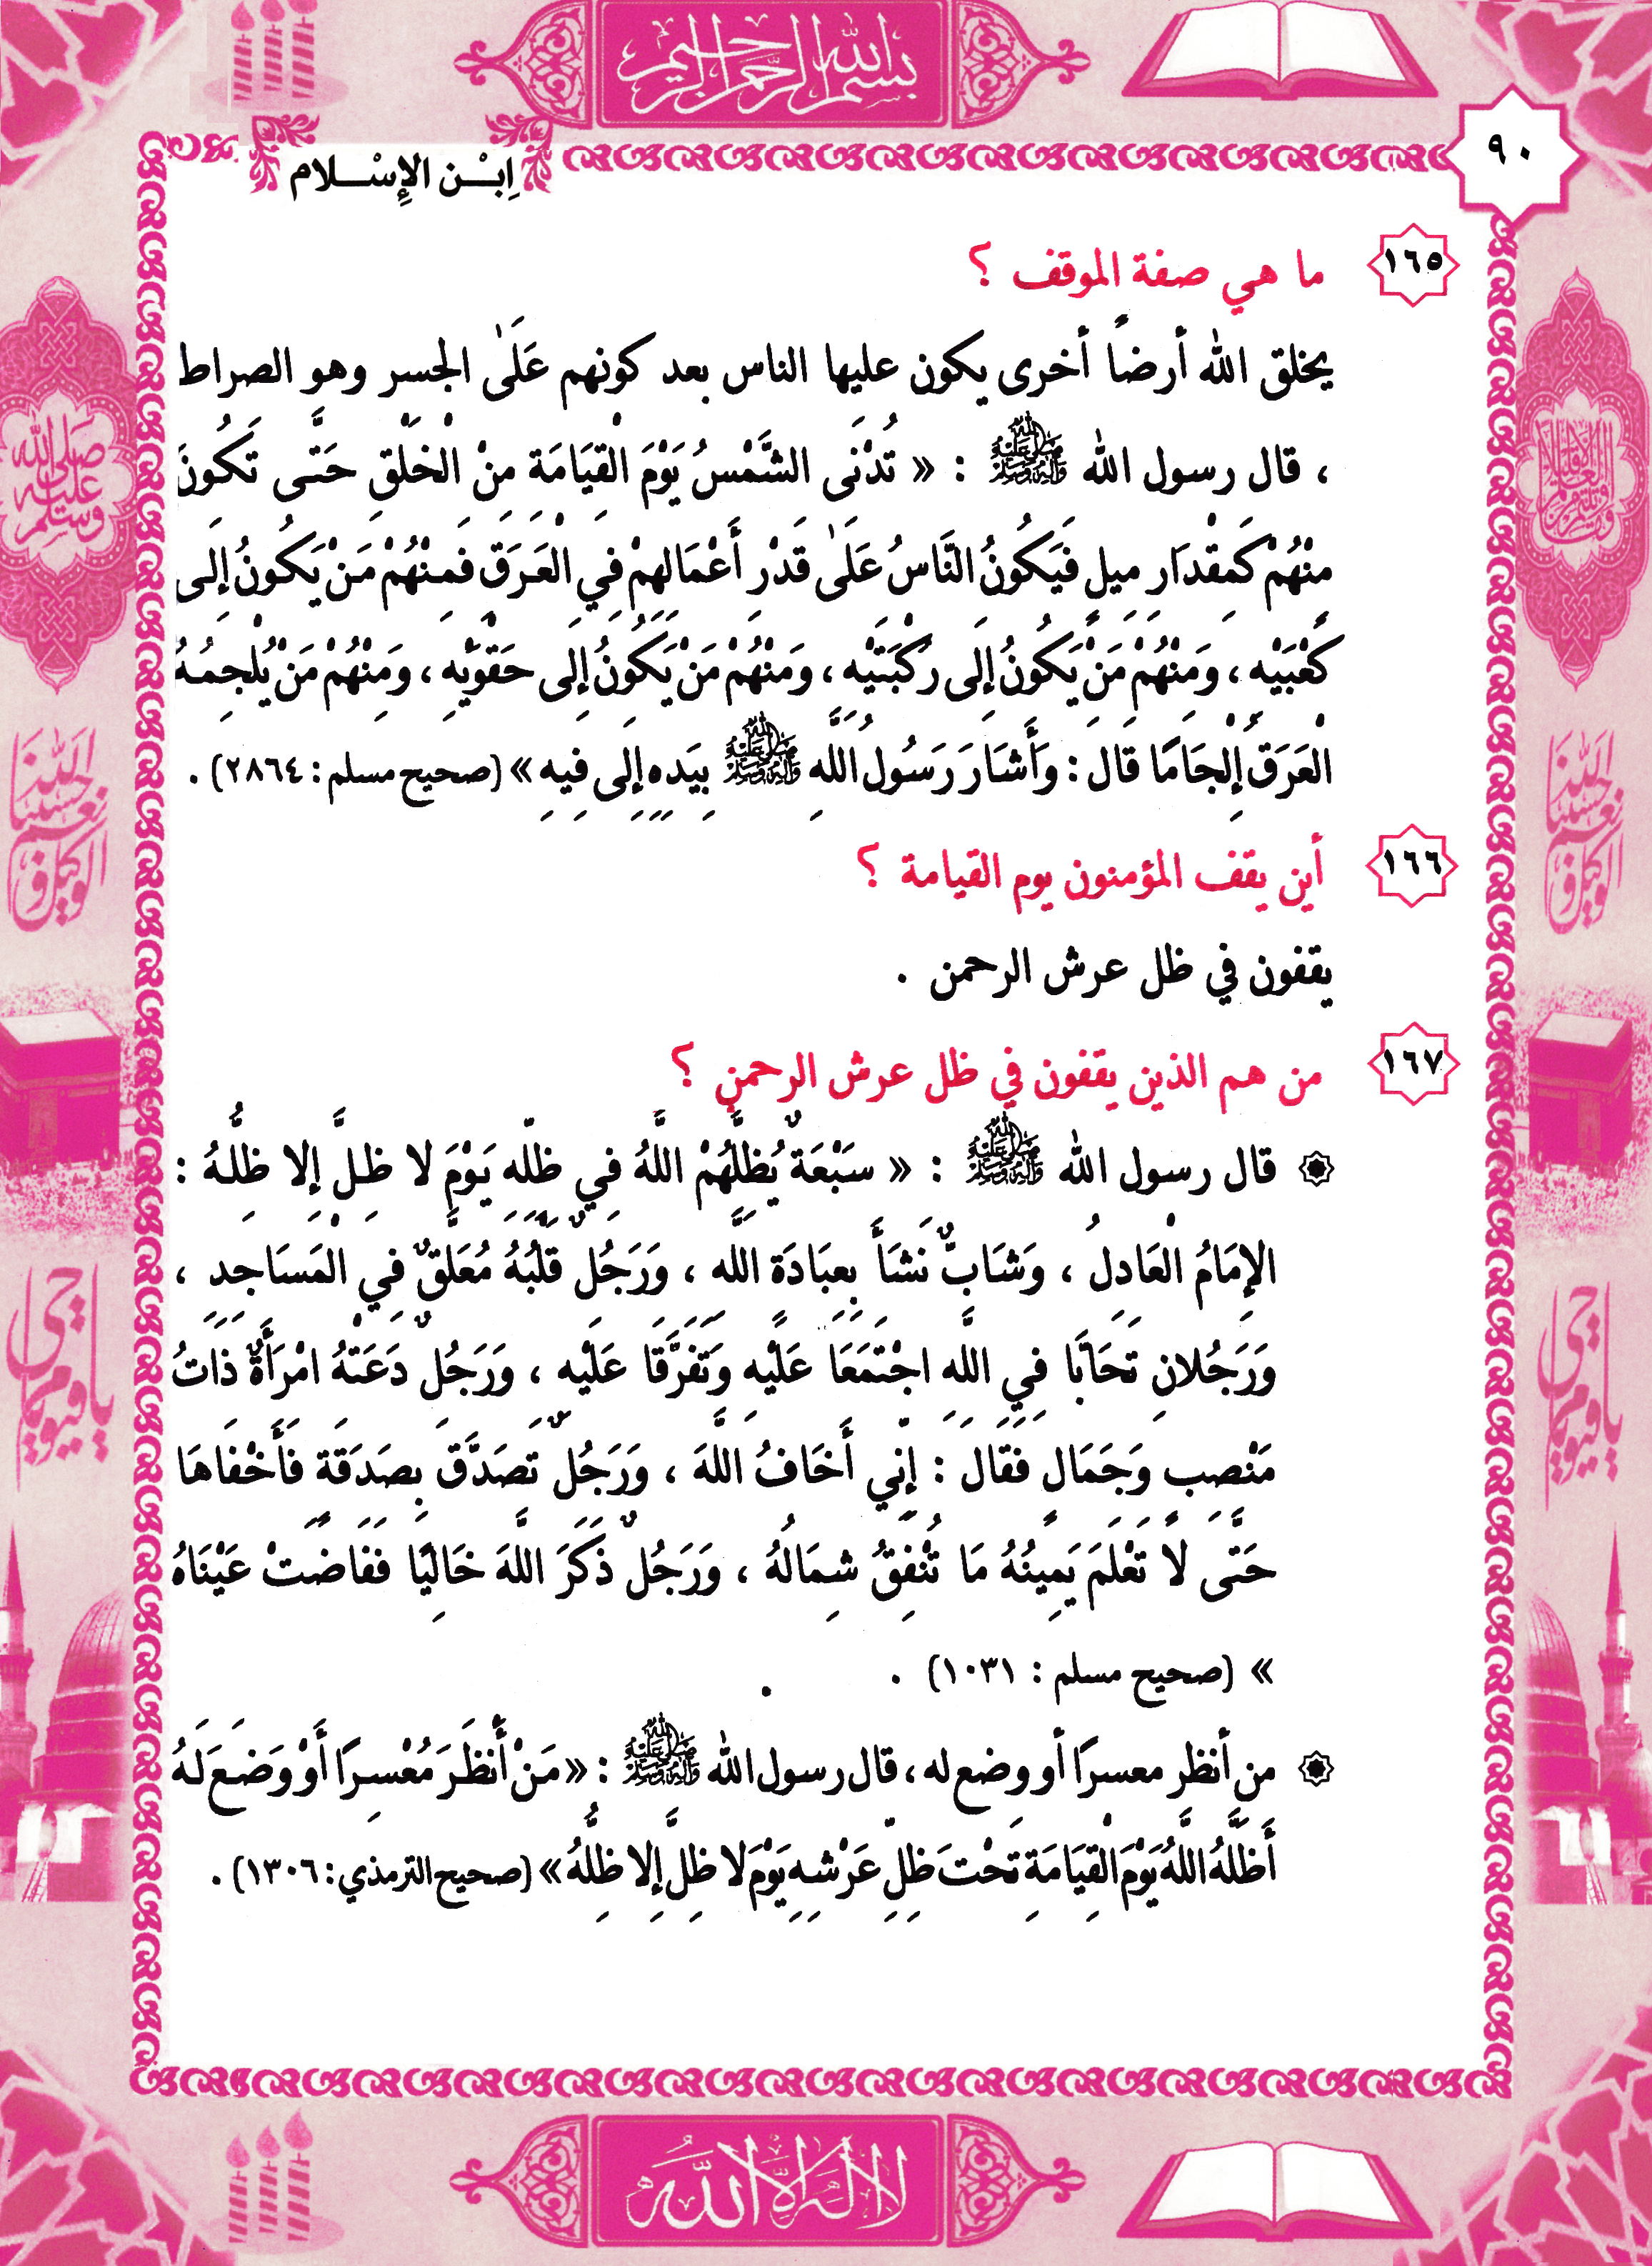 بسم الله الرحمن الرحيم
٩٠
اِبْـن الإِسْـلام
١٦٥ ما هي صفة الموقف ؟
يخلق الله أرضاً أخرى يكون عليها الناس بعد كونهم عَلَىٰ الجسر وهو الصراط
، قال رسول الله ﷺ : « تُدْنَى الشَّمْسُ يَوْمَ الْقِيَامَةِ مِنْ الْخَلْقِ حَتَّى تَكُونَ
مِنْهُمْ كَمِقْدَارِ مِيلٍ فَيَكُونُ النَّاسُ عَلَىٰ قَدْرِ أَعْمَالِهِمْ فِي الْعَرَقِ فَمِنْهُمْ مَنْ يَكُونُ إِلَى
كَعْبَيْهِ ، وَمِنْهُمْ مَنْ يَكُونُ إِلَى رُكْبَتَيْهِ ، وَمِنْهُمْ مَنْ يَكُونُ إِلَى حَقْوَيْهِ ، وَمِنْهُمْ مَنْ يُلْجِمُهُ
الْعَرَقُ إِلْجَامًا قَالَ : وَأَشَارَ رَسُولُ اللَّهِ ﷺ بِيَدِهِ إِلَى فِيهِ » (صحيح مسلم : ٢٨٦٤) .
١٦٦ أين يقف المؤمنون يوم القيامة ؟
يقفون في ظل عرش الرحمن .
١٦٧ من هم الذين يقفون في ظل عرش الرحمن ؟
۞ قال رسول الله ﷺ : « سَبْعَةٌ يُظِلُّهُمْ اللَّهُ فِي ظِلِّهِ يَوْمَ لا ظِلَّ إِلا ظِلُّهُ :
الإِمَامُ الْعَادِلُ ، وَشَابٌّ نَشَأَ بِعِبَادَةِ اللَّهِ ، وَرَجُلٌ قَلْبُهُ مُعَلَّقٌ فِي الْمَسَاجِدِ ،
وَرَجُلانِ تَحَابَّا فِي اللَّهِ اجْتَمَعَا عَلَيْهِ وَتَفَرَّقَا عَلَيْهِ ، وَرَجُلٌ دَعَتْهُ امْرَأَةٌ ذَاتُ
مَنْصِبٍ وَجَمَالٍ فَقَالَ : إِنِّي أَخَافُ اللَّهَ ، وَرَجُلٌ تَصَدَّقَ بِصَدَقَةٍ فَأَخْفَاهَا
حَتَّى لَا تَعْلَمَ يَمِينُهُ مَا تُنْفِقُ شِمَالُهُ ، وَرَجُلٌ ذَكَرَ اللَّهَ خَالِيًا فَفَاضَتْ عَيْنَاهُ
» (صحيح مسلم : ١٠٣١) .
۞ من أنظر معسرًا أو وضع له ، قال رسول الله ﷺ : « مَنْ أَنْظَرَ مُعْسِرًا أَوْ وَضَعَ لَهُ
أَظَلَّهُ اللَّهُ يَوْمَ الْقِيَامَةِ تَحْتَ ظِلِّ عَرْشِهِ يَوْمَ لا ظِلَّ إِلا ظِلُّهُ » (صحيح الترمذي : ١٣٠٦) .
صلى الله عليه وسلم
الله حسبنا ونعم الوكيل
الله حسبنا ونعم الوكيل
يا حي يا قيوم
يا حي يا قيوم
لا إله إلا الله